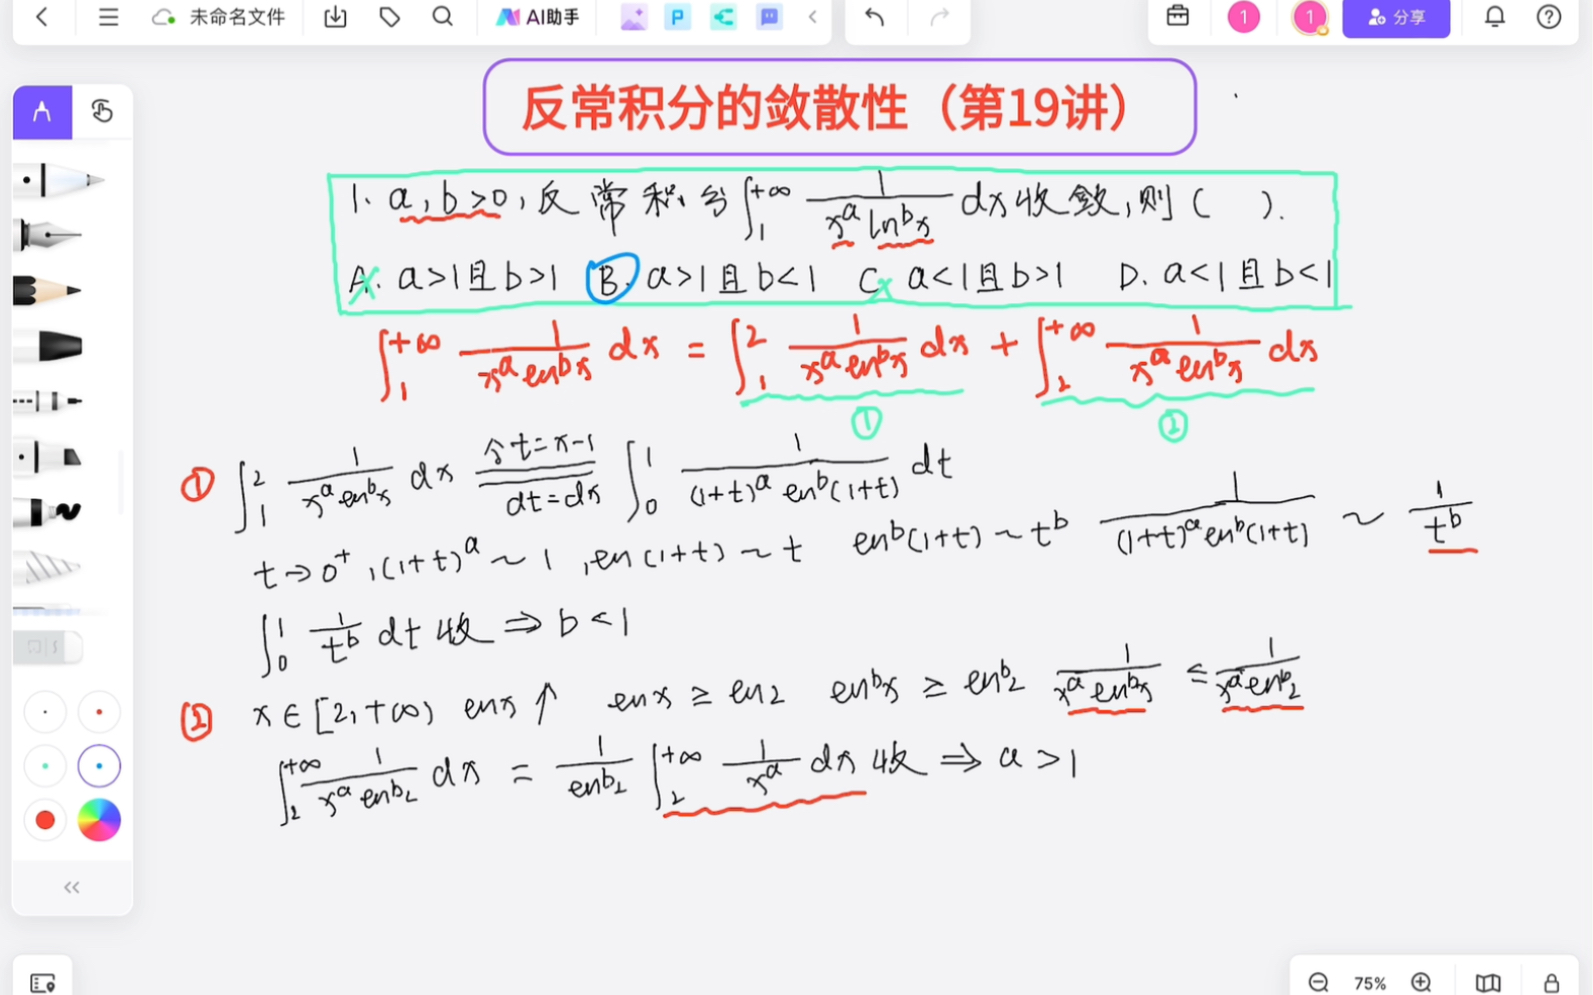 未命名文件 AI助手 P 1 1 分享
反常积分的敛散性（第19讲）
1. a,b>0,反常积分∫₁^{+∞} 1/(x^a ln^b x) dx收敛,则( ).
A. a>1且b>1 B. a>1且b<1 C. a<1且b>1 D. a<1且b<1
∫₁^{+∞} 1/(x^a ln^b x) dx = ∫₁² 1/(x^a ln^b x) dx + ∫₂^{+∞} 1/(x^a ln^b x) dx
① ②
① ∫₁² 1/(x^a ln^b x) dx 令t=x-1 dt=dx ∫₀¹ 1/((1+t)^a ln^b(1+t)) dt
t→0⁺,(1+t)^a~1,ln(1+t)~t ln^b(1+t)~t^b 1/((1+t)^a ln^b(1+t)) ~ 1/t^b
∫₀¹ 1/t^b dt 收⇒b<1
② x∈[2,+∞) lnx↑ lnx≥ln2 ln^b x≥ln^b 2 1/(x^a ln^b x) ≤ 1/(x^a ln^b 2)
∫₂^{+∞} 1/(x^a ln^b 2) dx = 1/(ln^b 2) ∫₂^{+∞} 1/x^a dx 收⇒a>1
75%